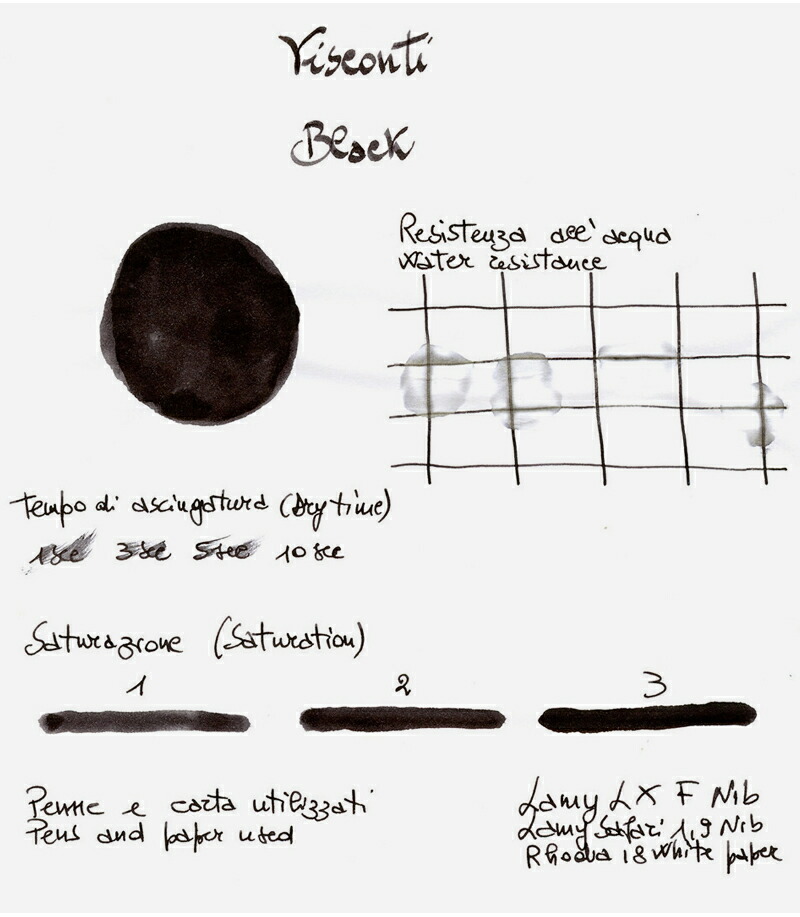 Visconti
Black
Resistenza all'acqua
Water resistance
Tempo di asciugatura (Dry time)
1 sec 3 sec 5 sec 10 sec
Saturazione (Saturation)
1 2 3
Penne e carta utilizzati
Pens and paper used
Lamy LX F Nib
Lamy Safari 1,9 Nib
Rhodia 18 White paper